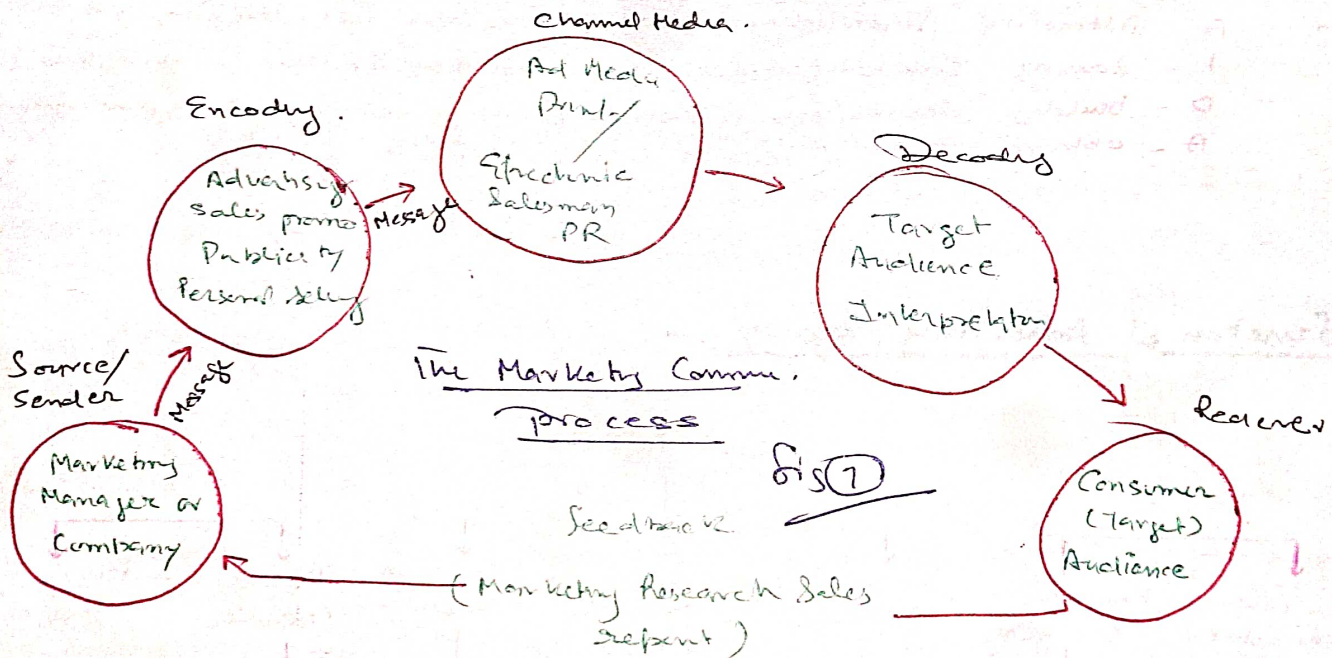 Channel Media.
Ad Media
Print/
Electronic
Salesman
PR
Encoding.
Advertising
Sales promo
Publicity
Personal Selling
Message
Decoding
Target
Audience
Interpretation
Source/
Sender
Message
Marketing
Manager or
Company
The Marketing Commu.
process
fig 1
Receiver
Consumer
(Target)
Audiance
feedback
(Marketing Research Sales
report)